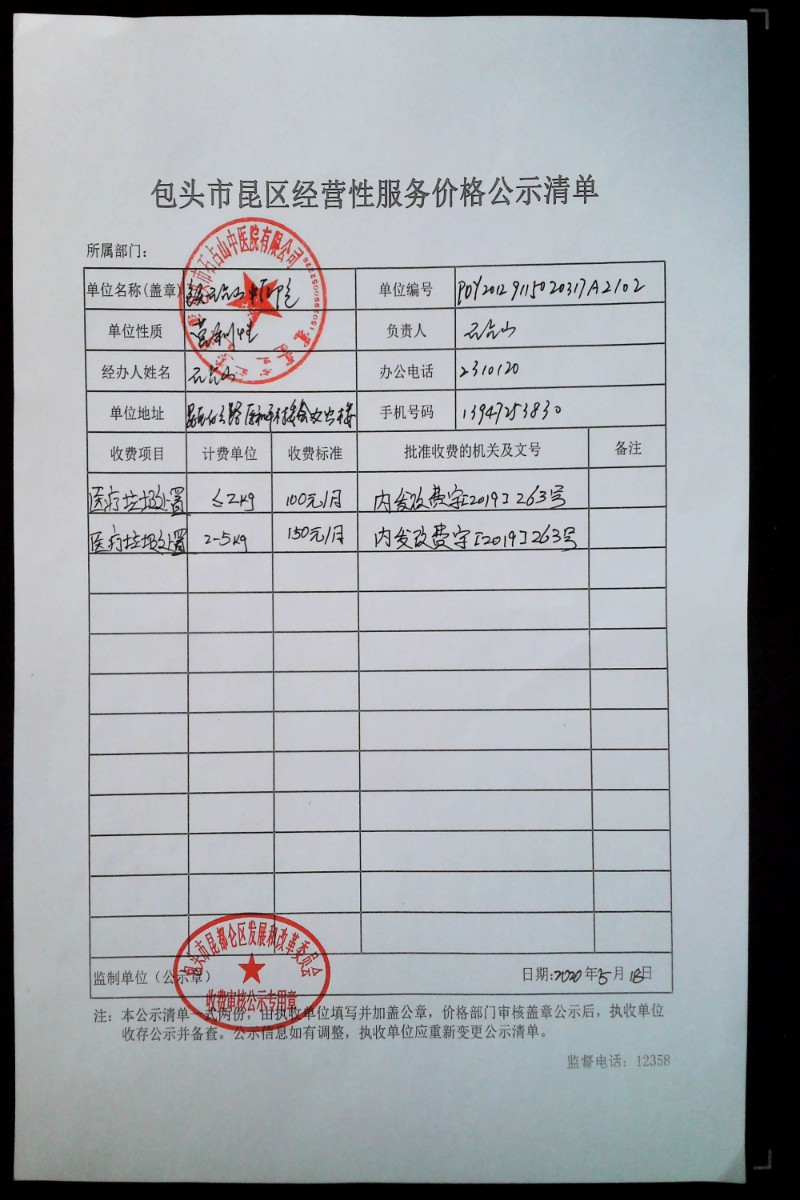 包头市昆区经营性服务价格公示清单
所属部门：
单位名称(盖章) 单位编号 PDY20129115020317A2102
单位性质 营利性 负责人 石占山
经办人姓名 石占山 办公电话 2310120
单位地址 手机号码 13947253830
收费项目 计费单位 收费标准 批准收费的机关及文号 备注
医疗垃圾处置 ≤2kg 100元/月 内发改费字[2019]263号
医疗垃圾处置 2-5kg 150元/月 内发改费字[2019]263号
包头市昆都仑区发展和改革委员会
收费审核公示专用章
监制单位（公示章） 日期:2020年5月18日
注：本公示清单一式两份，由执收单位填写并加盖公章，价格部门审核盖章公示后，执收单位
收存公示并备查。公示信息如有调整，执收单位应重新变更公示清单。
监督电话：12358